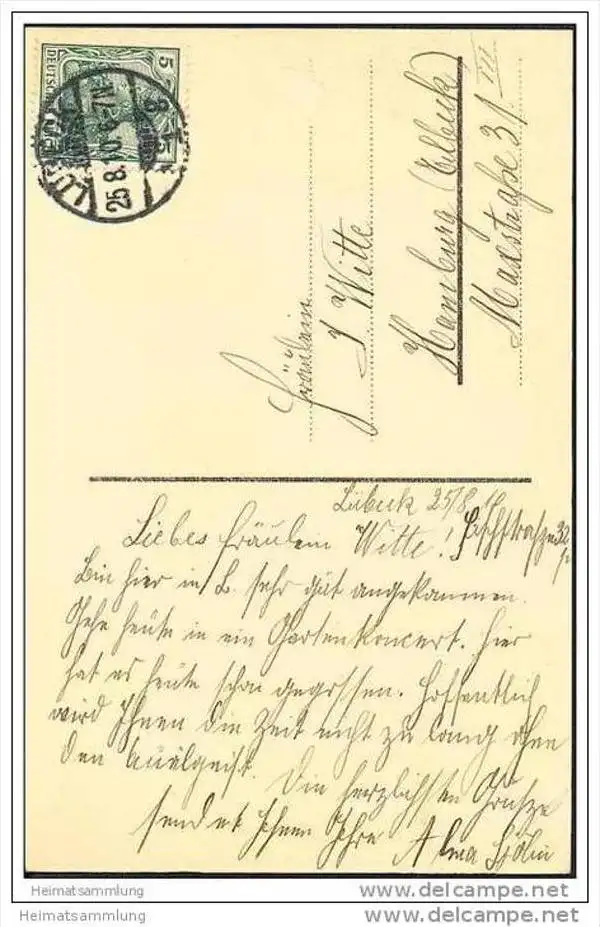 5
DEUTSCHES
LÜBECK
25.8.10.6-7N
Fräulein
J. Witte
Hamburg (Eilbeck)
Maxstraße 31 III
Lübeck 25/8 10
Liebes Fräulein Witte!
Bin hier in L. sehr gut angekommen.
Gehe heute in ein Gartenkoncert. Hier
hat es heute schon gegossen. Hoffentlich
wird Ihnen die Zeit nicht zu lang ohne
den Quälgeist. Die herzlichsten Grüsze
sendet Ihnen Ihre Alma
Heimatsammlung
Heimatsammlung
www.delcampe.net
www.delcampe.net